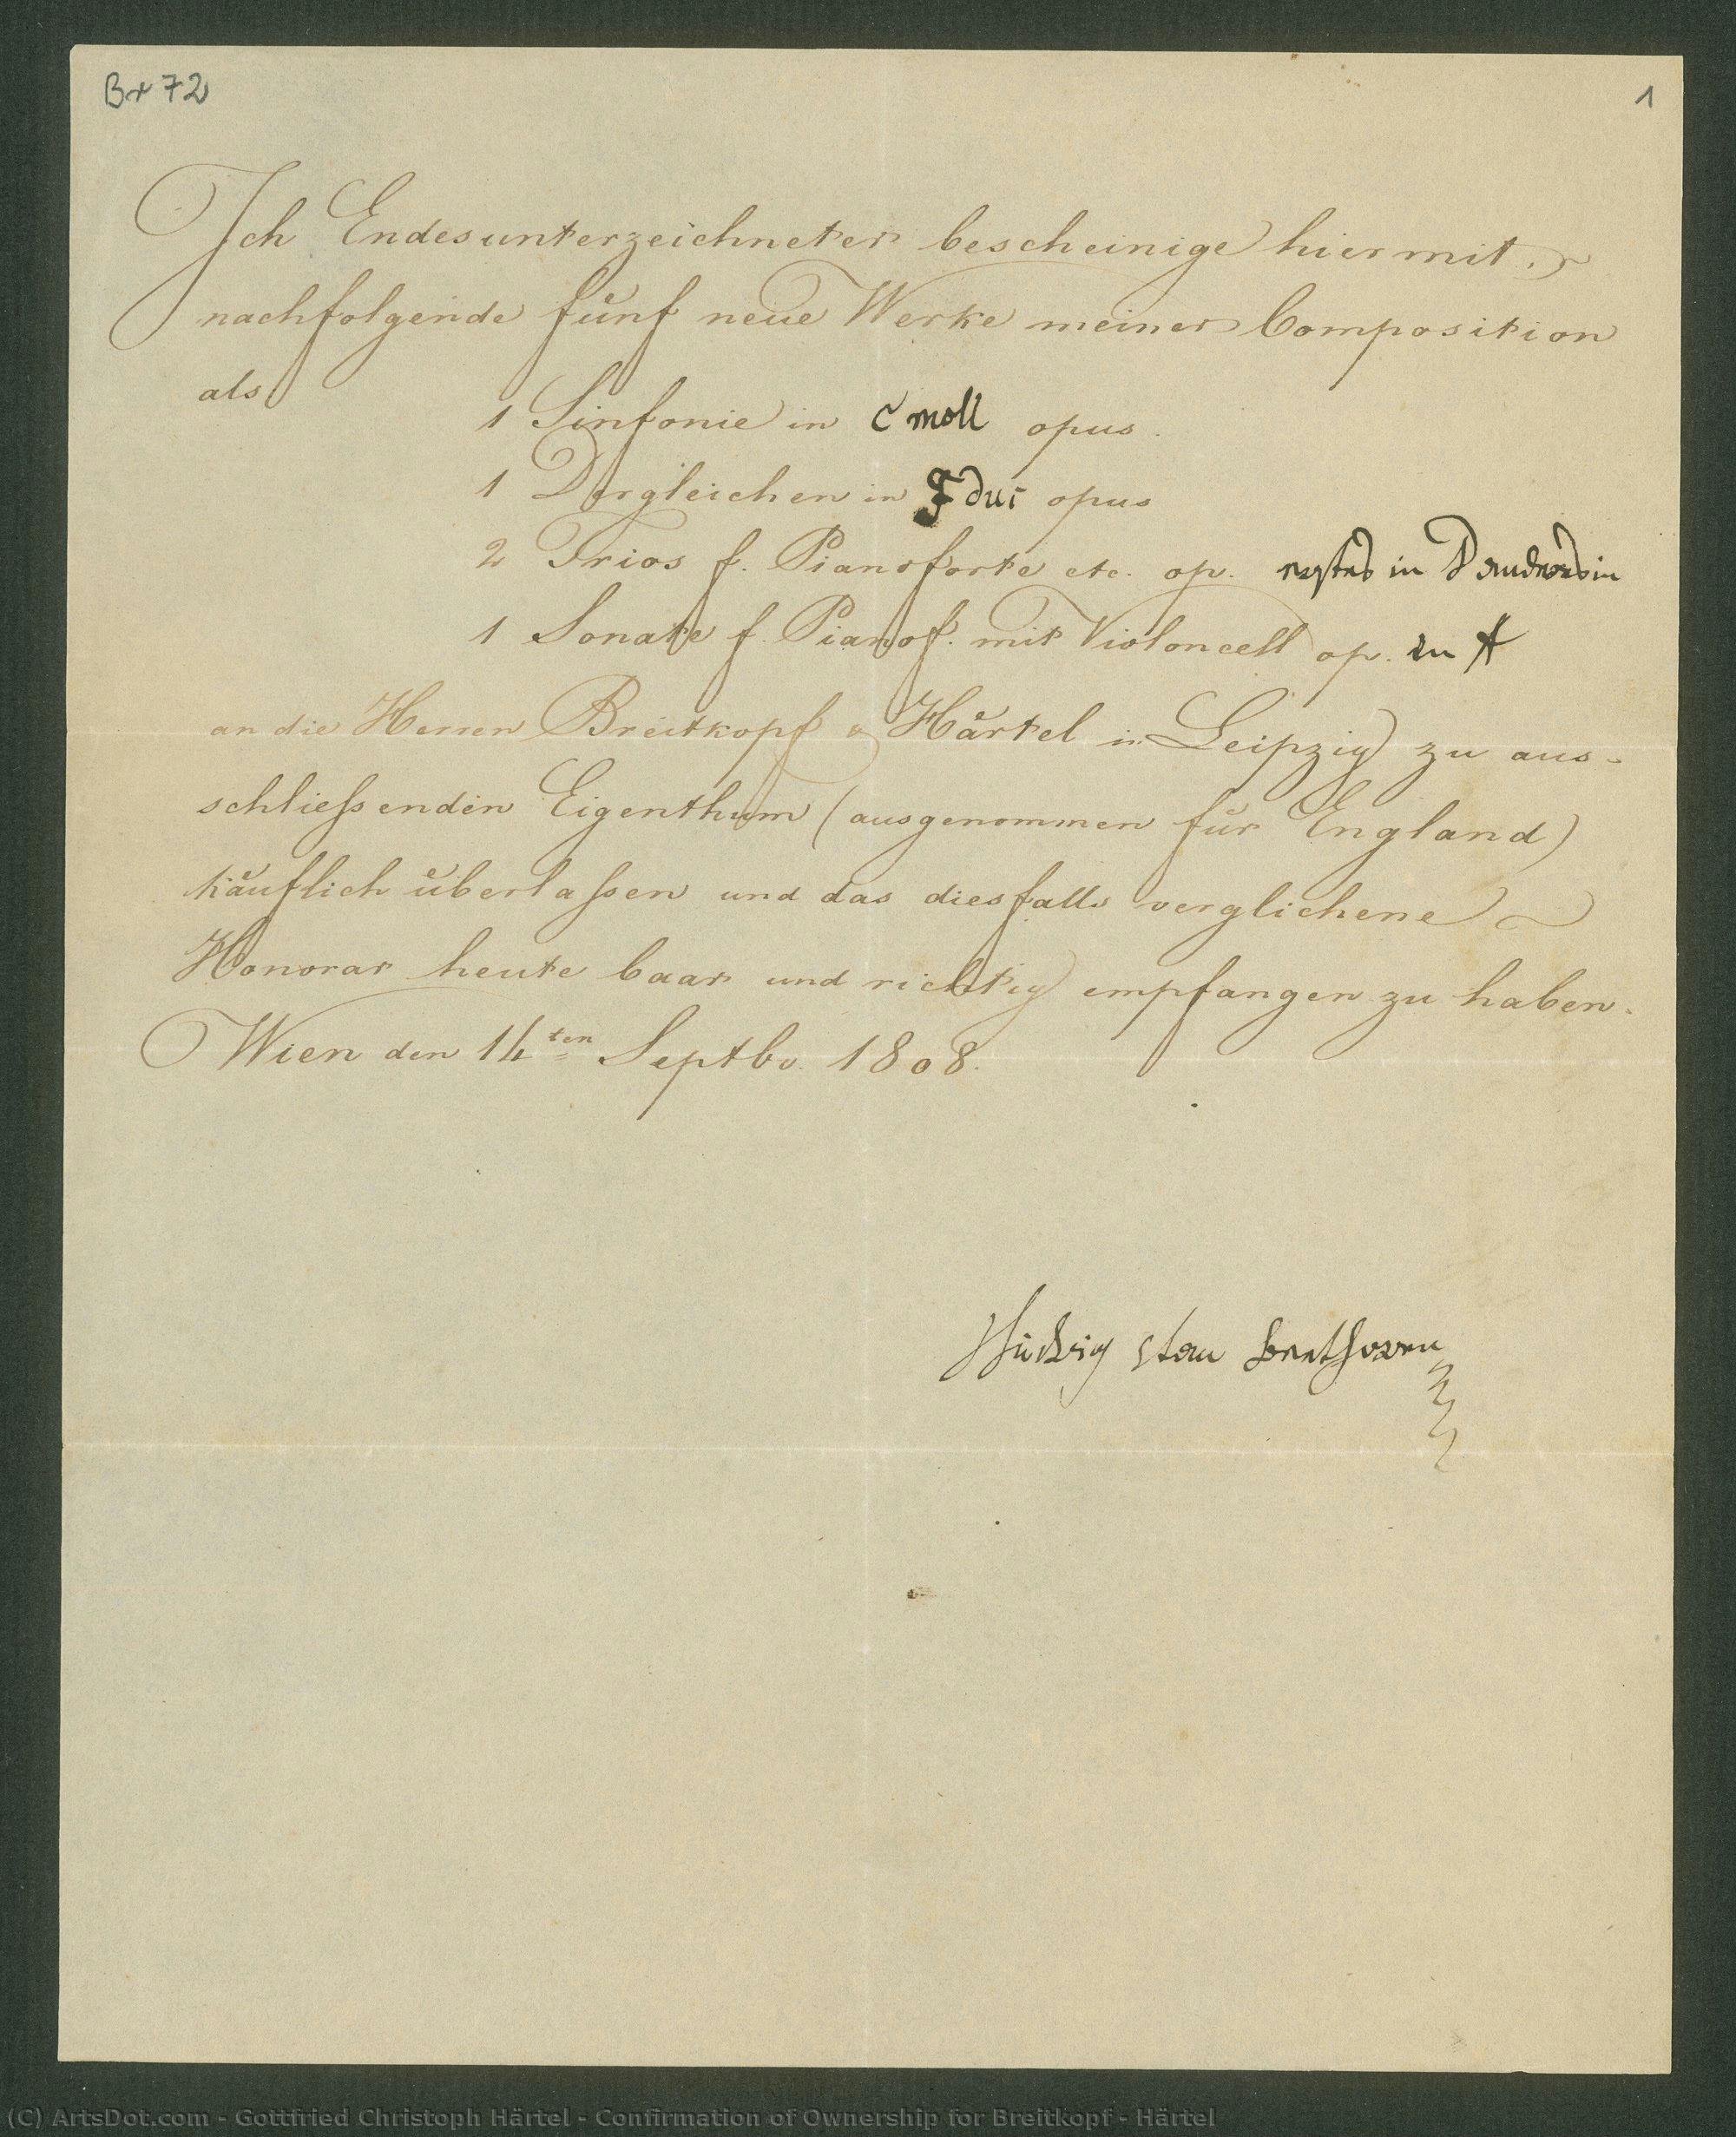 Br 72
1
Ich Endesunterzeichneter bescheinige hiermit
nachfolgende fünf neue Werke meiner Composition
als
1 Sinfonie in C moll opus.
1 Dergleichen in F dur opus
2 Trios f. Pianoforte etc. op. erstes in D anderes in
1 Sonate f. Pianof. mit Violoncell op. in A
an die Herren Breitkopf & Härtel in Leipzig zu aus-
schließenden Eigenthum (ausgenommen für England)
käuflich überlaßen und das diesfalls verglichene
Honorar heute baar und richtig empfangen zu haben.
Wien den 14ten Septbr. 1808.
Ludwig van Beethoven
(C) ArtsDot.com - Gottfried Christoph Härtel - Confirmation of Ownership for Breitkopf - Härtel